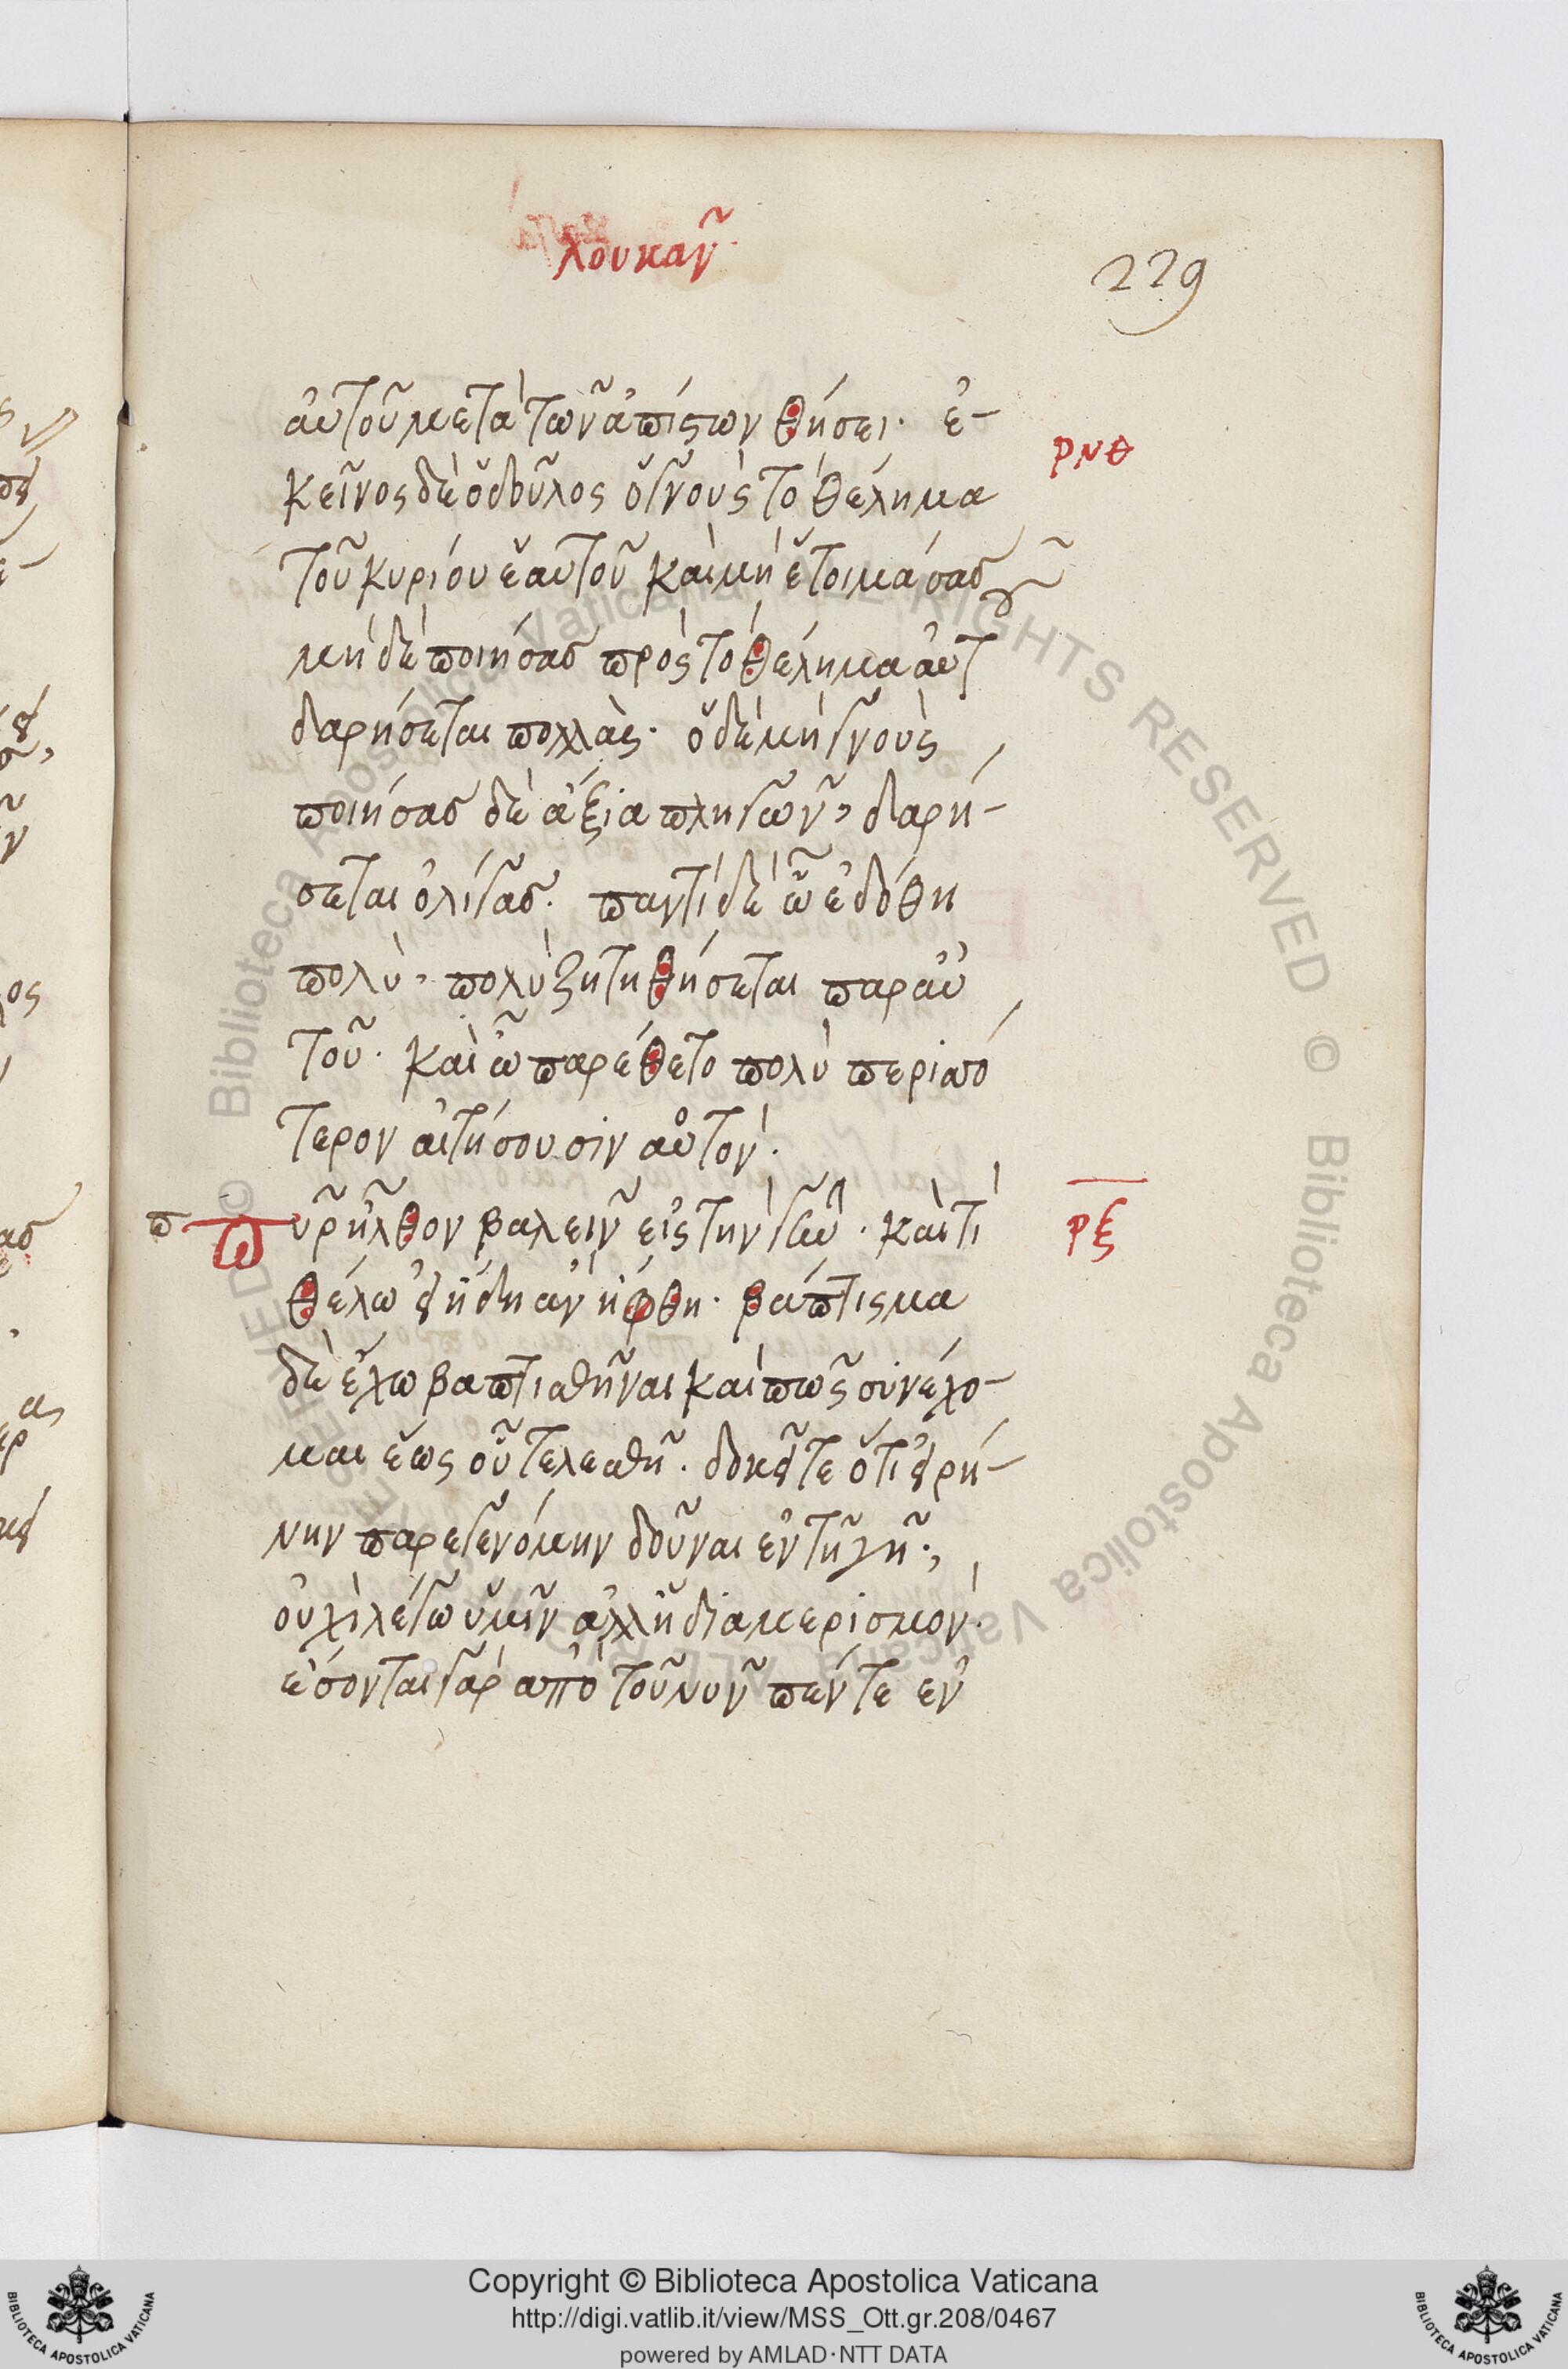 λουκᾶν
229
αὐτοῦ μετὰ τῶν ἀπίστων θήσει· ἐ-
ρνθ
κεῖνος δὲ ὁ δοῦλος ὁ γνοὺς τὸ θέλημα
τοῦ κυρίου ἑαυτοῦ καὶ μὴ ἑτοιμάσας
μὴ δὲ ποιήσας πρὸς τὸ θέλημα αὐτ
δαρήσεται πολλὰς· ὁ δὲ μὴ γνοὺς
ποιήσας δὲ ἄξια πληγῶν, δαρή-
σεται ὀλίγας· παντὶ δὲ ὧ ἐδόθη
πολὺ, πολὺ ζητηθήσεται παρ αὐ
τοῦ· καὶ ὧ παρέθετο πολὺ περισσό
τερον αἰτήσουσιν αὐτόν·
π πῦρ ἦλθον βαλεῖν εἰς τὴν γῆν· καὶ τί
ρξ
θέλω εἰ ἤδη ἀνήφθη· βάπτισμα
δὲ ἔχω βαπτισθῆναι καὶ πῶς συνέχο-
μαι ἕως οὗ τελεσθῆ· δοκεῖτε ὅτι εἰρή-
νην παρεγενόμην δοῦναι ἐν τῆ γῆ·,
οὐχὶ λέγω ὑμῖν ἀλλ ἢ διαμερισμόν·
ἔσονται γὰρ ἀπὸ τοῦ νῦν πέντε ἐν
Copyright © Biblioteca Apostolica Vaticana
http://digi.vatlib.it/view/MSS_Ott.gr.208/0467
powered by AMLAD·NTT DATA